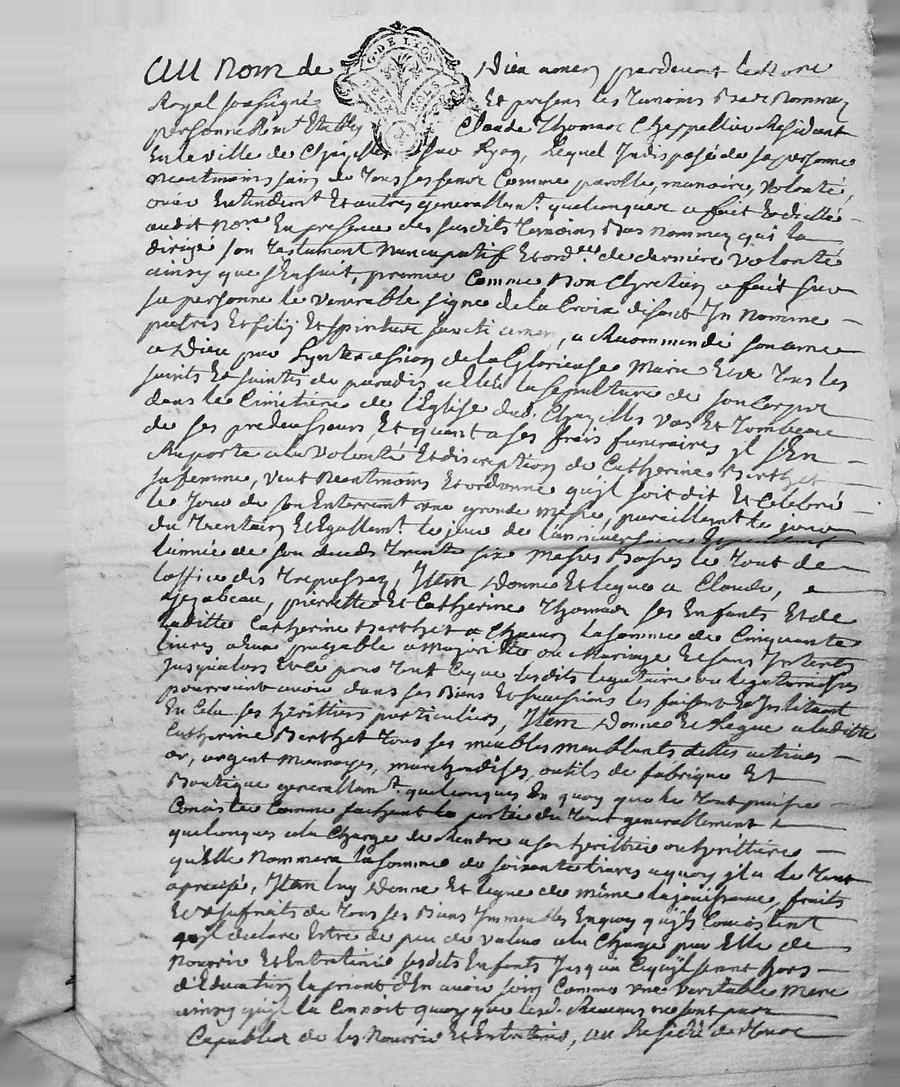 Au nom de Dieu amen pardevant le Nore
G. DE LYON
DEUX SOLS
Royal soussigné Et presens les Temoins Bas Nommez
personnellemt Etably Claude Thomas Chappellier Résidant
En la ville de Chazelles sur Lyon, Lequel Indisposé de sa personne
Neantmoins sain de Tous ses sens Comme parolle, memoire, Volonté,
ouie Entendemt Et autres generallemt quelconques a fait Et dicté
audit Nore En presence des susdits Temoins Bas nommez qui l'a
dirigé son Testament Nuncupatif Et ordce de derniere Volonté
ainsy que s'Ensuit, premier Comme Bon Chretien a fait sur
sa personne le venerable signe de la Croix disant In Nomine
patris Et filij Et spiritus sancti amen, a Recommandé son ame
a Dieu par L'yntercession de la Glorieuse Marie Et de Tous les
saints Et saintes de paradis a Eleu la sepulture de son Corps
dans le Cimetiere de l'Eglise dud. Chazelles Vas Et Tombeau
de ses predecesseurs, Et quant a ses frais funeraires yl s'En
Raporte a la Volonté Et discretion de Catherine Berthet
sa femme, veut Neantmoins Et ordonne qu'yl soit dit Et Celebré
le Jour de son Enterremt une grande messe, pareillement le jour
du Trentain Et Egallemt le jour de l'anniversaire
l'année de son deceds Trente six Messes Basses le Tout de
l'office des Trepassez, Item Donne Et legue a Claude,
Yzabeau, pierrette Et Catherine Thomas ses Enfants Et de
laditte Catherine Berthet a Chacun la somme de Cinquante
livres a Eux payable a Majorité ou Mariage Et sans Interets
Jusqu'alors Et Ce pour Tout Ce que lesdits legataires ou legatairesses
pourroient avoir dans ses Biens Et successions les faisant Et Instituant
En Cela ses heritiers particuliers, Item Donne Et legue a laditte
Catherine Berthet Tous ses meubles meublants dettes actives
or, argent Monnoyé, marchandises, outils de fabrique Et
Boutique generallemt quelconques En quoy que le Tout puisse
Consister Comme sachant la portée du Tout generallement
quelconques a la Charge de Rendre a son heritier ou heritiere
qu'Elle Nommera la somme de soixante livres a quoy yl a le Tout
aprecié, Item luy Donne Et legue de même la jouissance, fruits
Et Usufruits de Tous ses Biens Immeubles En quoy qu'yls Consistent
qu'yl declare Estre de peu de valeur a la Charge par Elle de
Nourrir Et Entretenir sesdits Enfants Jusqu'a Ce qu'yl seront hors
d'Education la priant d'En avoir soin Comme une veritable Mere
ainsy qu'yl la Connoit quoy que lesd. Revenus ne sont pas
Capables de les Nourrir Et Entretenir, au Residu de Tous